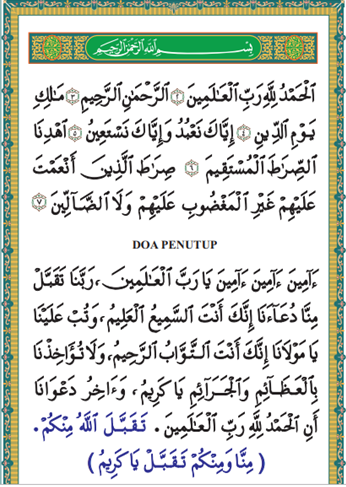 بِسْمِ اللهِ الرَّحْمٰنِ الرَّحِيْمِ
الْحَمْدُ لِلَّهِ رَبِّ الْعَالَمِينَ ﴿٢﴾ الرَّحْمَٰنِ الرَّحِيمِ ﴿٣﴾ مَالِكِ
يَوْمِ الدِّينِ ﴿٤﴾ إِيَّاكَ نَعْبُدُ وَإِيَّاكَ نَسْتَعِينُ ﴿٥﴾ اهْدِنَا
الصِّرَاطَ الْمُسْتَقِيمَ ﴿٦﴾ صِرَاطَ الَّذِينَ أَنْعَمْتَ
عَلَيْهِمْ غَيْرِ الْمَغْضُوبِ عَلَيْهِمْ وَلَا الضَّالِّينَ ﴿٧﴾
DOA PENUTUP
ءَامِينَ ءَامِينَ ءَامِينَ يَا رَبَّ الْعَالَمِينَ، رَبَّنَا تَقَبَّلْ
مِنَّا دُعَآءَنَا إِنَّكَ أَنْتَ السَّمِيعُ الْعَلِيمُ، وَتُبْ عَلَيْنَا
يَا مَوْلَانَا إِنَّكَ أَنْتَ التَّوَّابُ الرَّحِيمُ، وَلَا تُؤَاخِذْنَا
بِالْعَظَآئِمِ وَالْجَرَآئِمِ يَا كَرِيمُ، وَءَاخِرُ دَعْوَانَا
أَنِ الْحَمْدُ لِلَّهِ رَبِّ الْعَالَمِينَ. تَقَبَّلَ اللَّهُ مِنْكُمْ.
( مِنَّا وَمِنْكُمْ تَقَبَّلْ يَا كَرِيمُ )